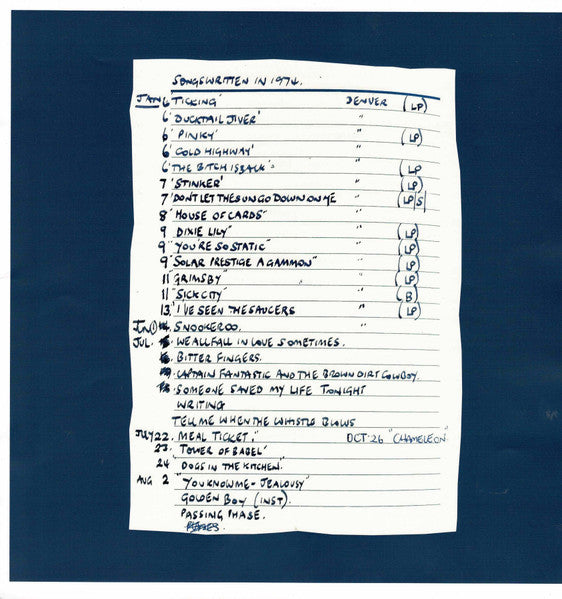 SONGS WRITTEN IN 1974.
JAN 6 'TICKING' DENVER (LP)
6 'DUCKTAIL JIVER' "
6 'PINKY' " (LP)
6 'COLD HIGHWAY' "
6 'THE BITCH IS BACK' " (LP
7 'STINKER' " (LP)
7 'DON'T LET THE SUN GO DOWN ON ME " (LP/S)
8 'HOUSE OF CARDS" "
9 DIXIE LILY' " (LP)
9 "YOU'RE SO STATIC" " (LP)
9 "SOLAR PRESTIGE A GAMMON" " (LP)
11 "GRIMSBY" " (LP)
11 "SICK CITY" " (B)
13. "I'VE SEEN THE SAUCERS " (LP)
SNOOKEROO. "
JUL. WE ALL FALL IN LOVE SOMETIMES.
BITTER FINGERS.
CAPTAIN FANTASTIC AND THE BROWN DIRT COWBOY.
SOMEONE SAVED MY LIFE TONIGHT
WRITING
TELL ME WHEN THE WHISTLE BLOWS
JULY 22. MEAL TICKET." OCT 26 "CHAMELEON"
23. "TOWER OF BABEL"
24 "DOGS IN THE KITCHEN."
AUG 2 "YOU KNOW ME - JEALOUSY"
GOLDEN BOY (INST).
PASSING PHASE.